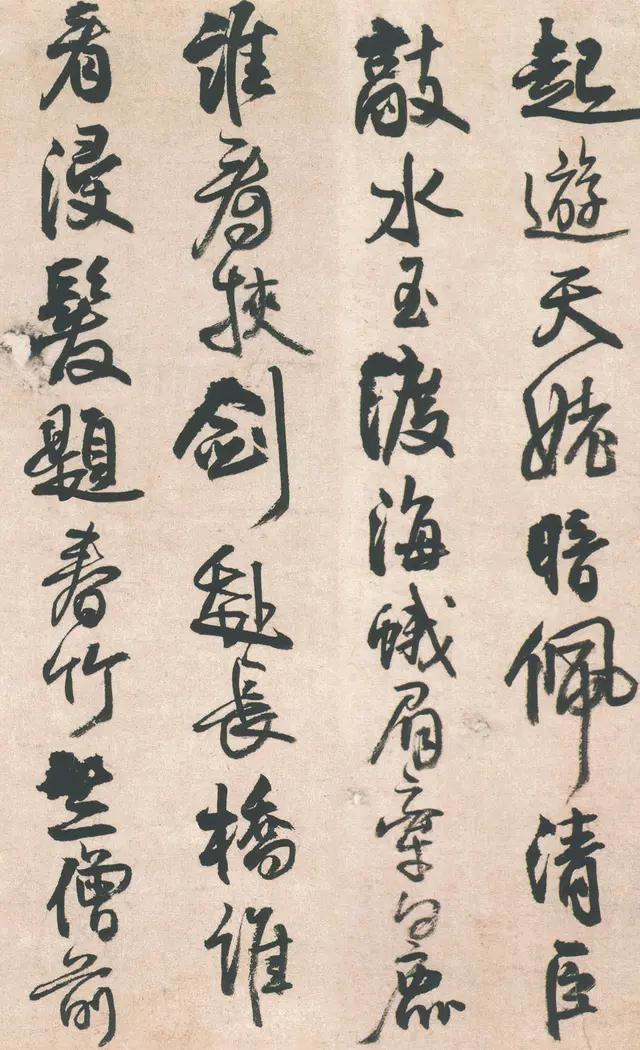 起遊天姥暗佩清臣
敲水玉渡海蛾眉牽白鹿
誰看挾劍赴長橋誰
看浸髮題春竹竺僧前